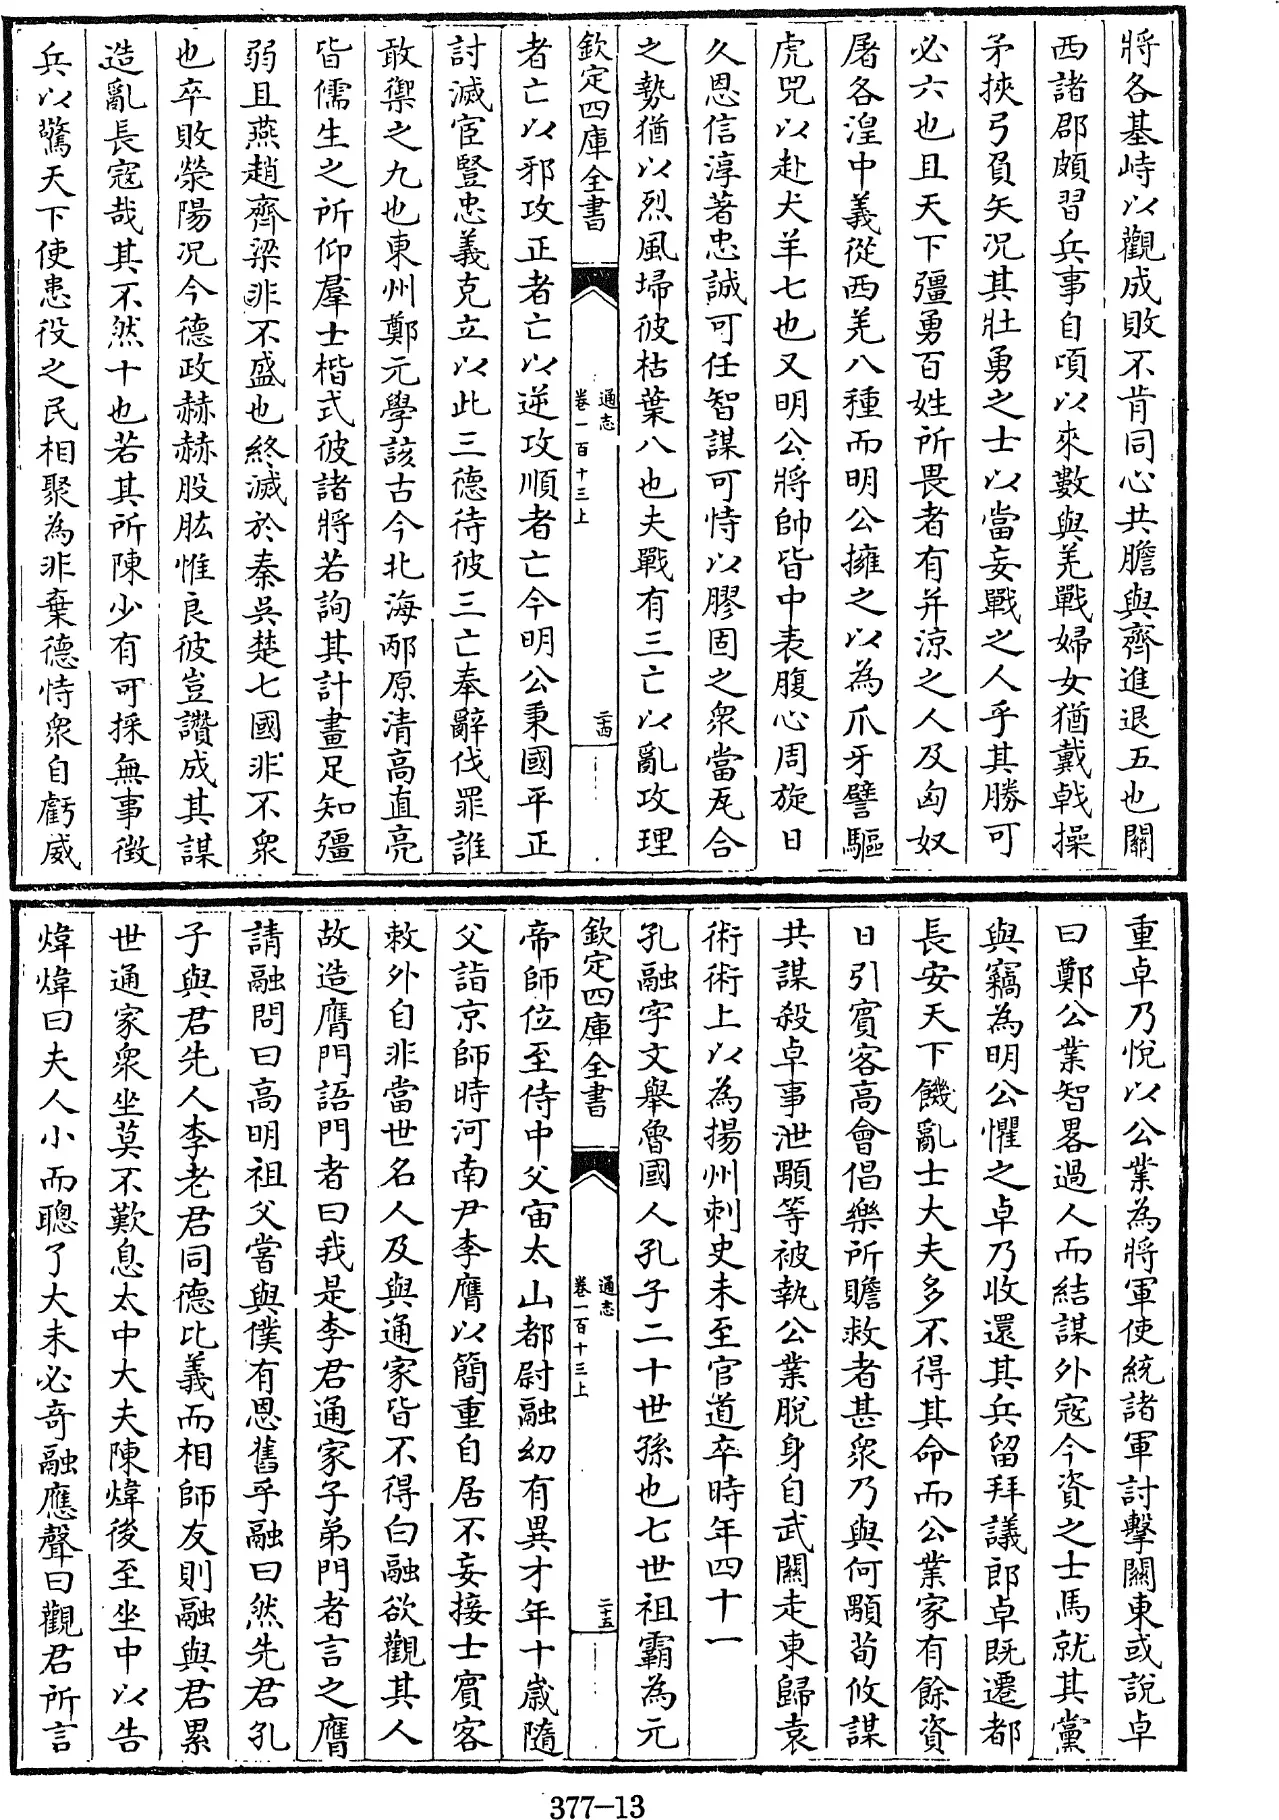 將各基峙以觀成敗不肯同心共膽與齊進退五也關
西諸郡頗習兵事自頃以來數與羌戰婦女猶戴戟操
矛挾弓負矢况其壯勇之士以當妄戰之人乎其勝可
必六也且天下彊勇百姓所畏者有并涼之人及匈奴
屠各湟中義從西羌八種而明公擁之以為爪牙譬驅
虎兕以赴犬羊七也又明公將帥皆中表腹心周旋日
久恩信淳著忠誠可任智謀可恃以膠固之衆當瓦合
之勢猶以烈風埽彼枯葉八也夫戰有三亡以亂攻理
欽定四庫全書
通志
卷一百十三上
二十四
者亡以邪攻正者亡以逆攻順者亡今明公秉國平正
討滅宦豎忠義克立以此三德待彼三亡奉辭伐罪誰
敢禦之九也東州鄭元學該古今北海邴原清高直亮
皆儒生之所仰羣士楷式彼諸將若詢其計畫足知彊
弱且燕趙齊梁非不盛也終滅於秦吳楚七國非不衆
也卒敗滎陽况今德政赫赫股肱惟良彼豈讚成其謀
造亂長寇哉其不然十也若其所陳少有可採無事徵
兵以驚天下使患役之民相聚為非棄德恃衆自虧威
重卓乃悅以公業為將軍使統諸軍討擊關東或說卓
曰鄭公業智畧過人而結謀外寇今資之士馬就其黨
與竊為明公懼之卓乃收還其兵留拜議郎卓既遷都
長安天下饑亂士大夫多不得其命而公業家有餘資
日引賓客高會倡樂所贍救者甚衆乃與何顒荀攸謀
共謀殺卓事泄顒等被執公業脫身自武關走東歸袁
術術上以為揚州刺史未至官道卒時年四十一
孔融字文舉魯國人孔子二十世孫也七世祖霸為元
欽定四庫全書
通志
卷一百十三上
二十五
帝師位至侍中父宙太山都尉融幼有異才年十歲隨
父詣京師時河南尹李膺以簡重自居不妄接士賓客
敕外自非當世名人及與通家皆不得白融欲觀其人
故造膺門語門者曰我是李君通家子弟門者言之膺
請融問曰高明祖父嘗與僕有恩舊乎融曰然先君孔
子與君先人李老君同德比義而相師友則融與君累
世通家衆坐莫不歎息太中大夫陳煒後至坐中以告
煒煒曰夫人小而聰了大未必奇融應聲曰觀君所言
377-13